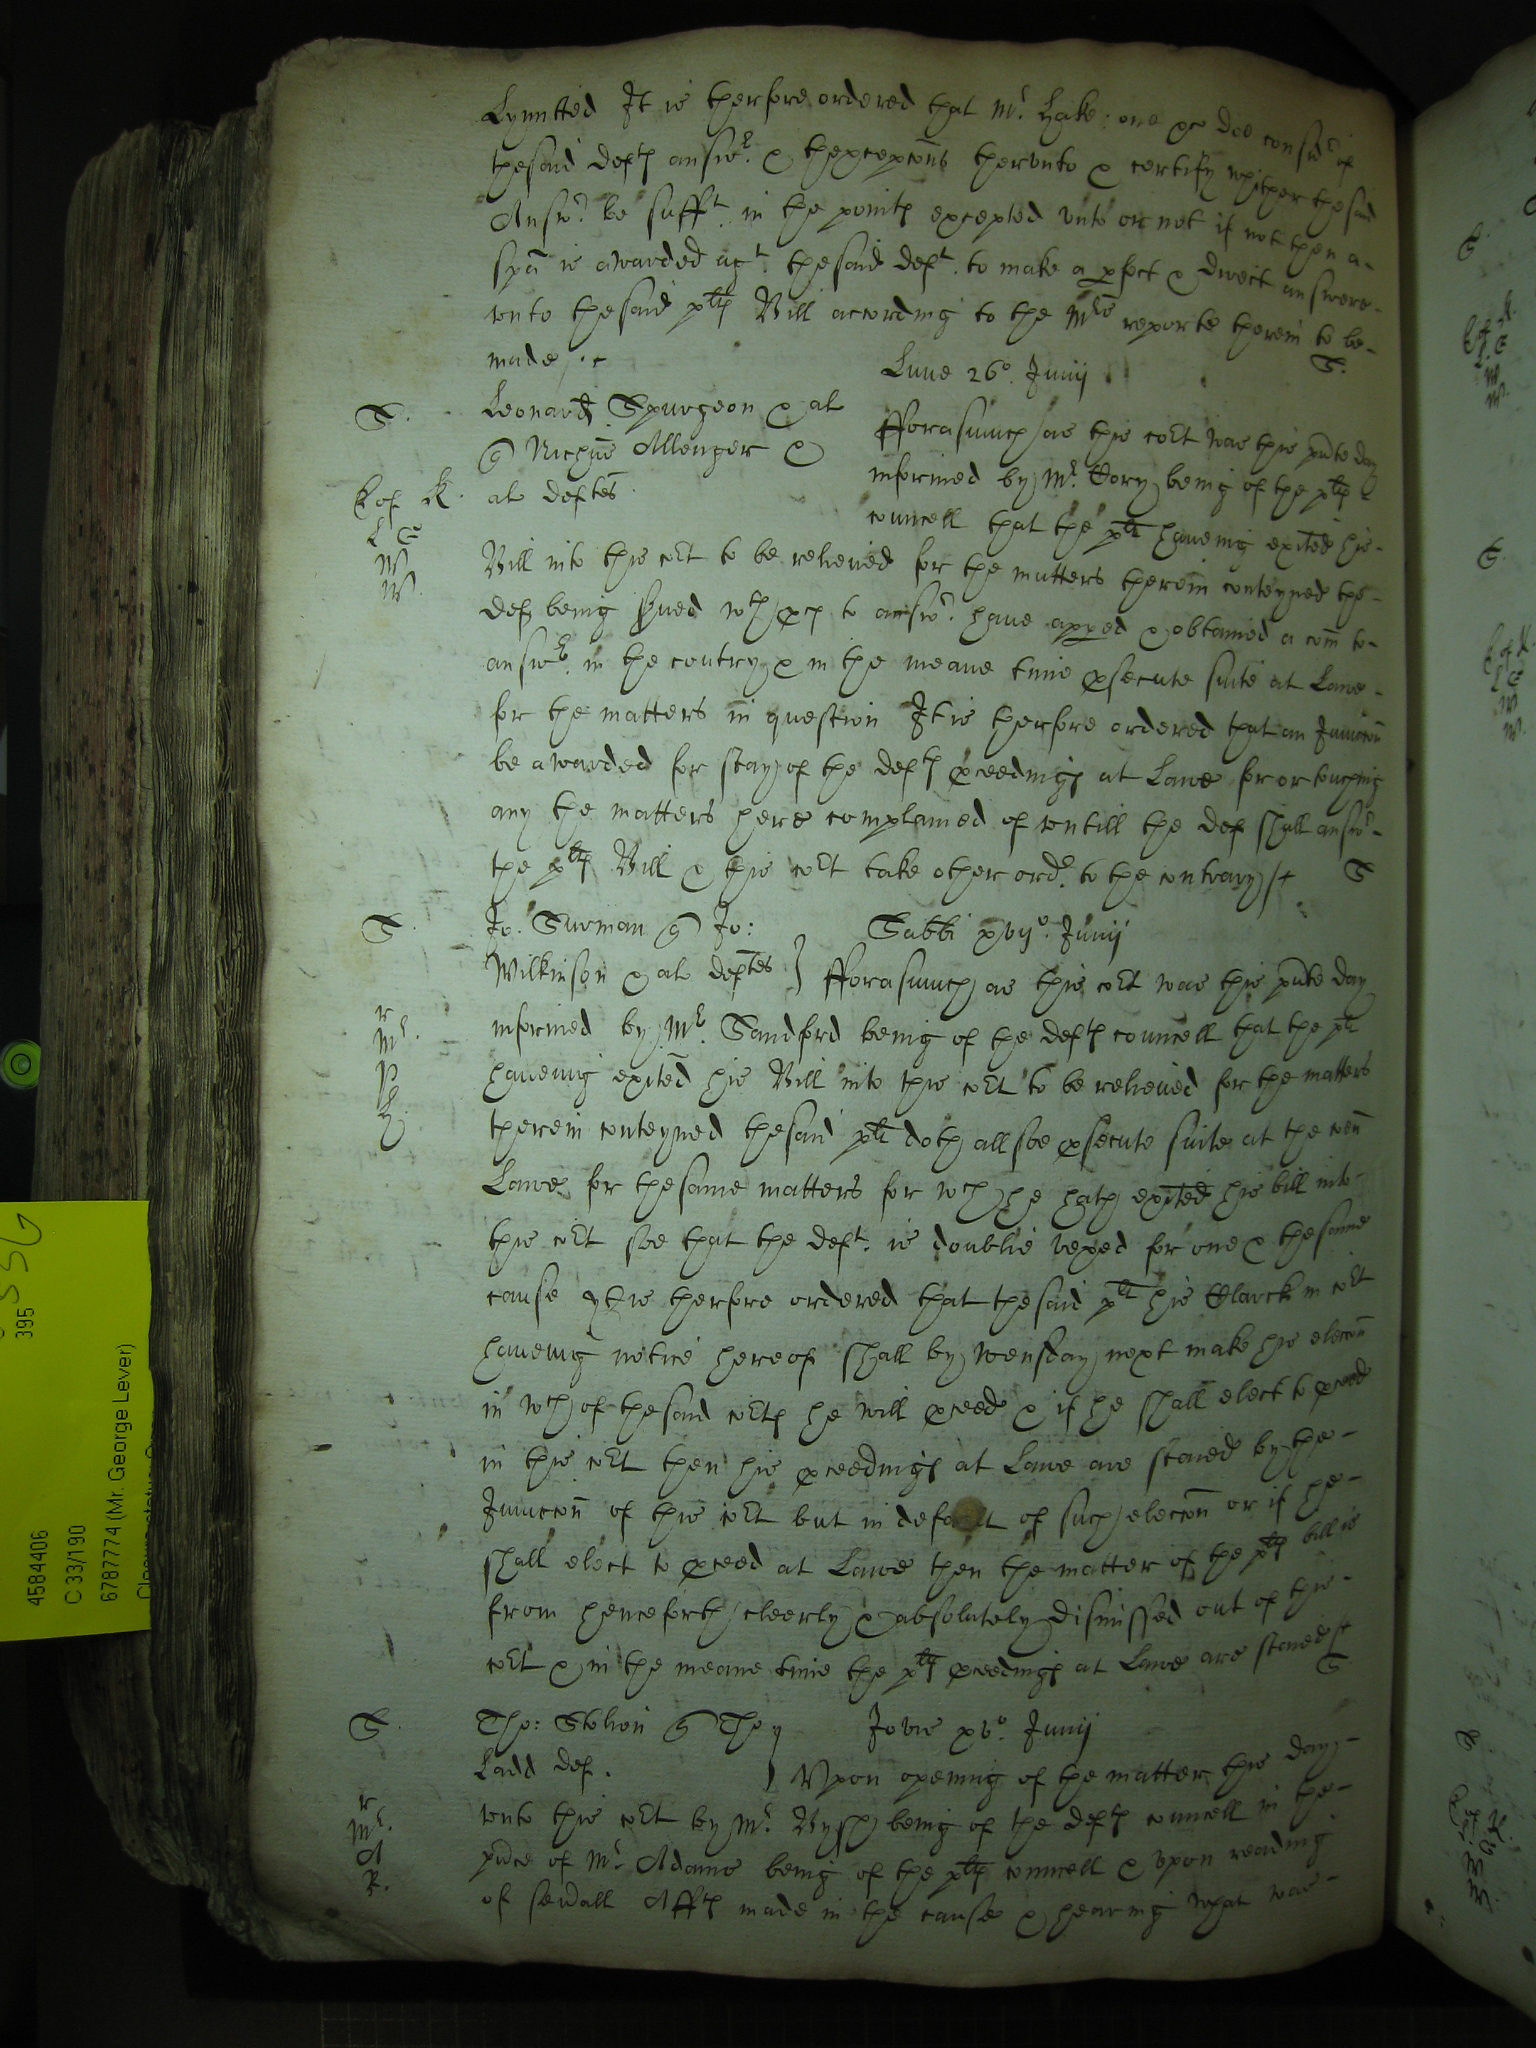 Lymitted It is therfore ordered that Mr. Hake one &c doe consider of
thesaid deftes answer & thexcepcons thervnto & certify whither thesaid
Answer be sufft. in the pointes excepted vnto or not if not then a-
spa is awarded agt thesaid deft. to make a pfect & direct answere-
vnto thesaid pltes Bill according to the Mres reporte therein to be-
made /.
Lune 26o. Junij
S.
S.
Leonard Spurgeon & al
Nichus Allenger &
als deftes.
fforasmuch as this cort was this pnte day
informed by Mr. Cory being of the pltes
councell that the plt haueing exited his-
Bill into this cort to be relieued for the matters therein conteyned the-
def being serued wth pces to answr haue apped & obtained a com to-
answer in the contry & in the meane time psecute suite at Lawe-
for the matters in question It is therfore ordered that an Iniuncion
be awarded for stay of the deftes pceedinges at Lawe for or touching
any the matters here complained of vntill the def shall answr-
the pltes Bill & this cort take other order to the contrary /
S
S.
Jo. Surman Jo:
Wilkinson & als deftes
Sabbi xvijo. Junij
fforasmuch as this cort was this pnte day
informed by Mr. Sandford being of the deftes councell that the plt
haueing exited his Bill into this cort to be relieued for the matters
therein conteyned thesaid plt doth allsoe psecute suite at the comon
Lawe for thesame matters for wch he hath exited his bill into-
this cort soe that the deft. is doublie vexed for one & thesame
cause yt is therfore ordered that thesaid plt his Clarck in cort
haueing notice hereof shall by wensday next make his eleccon
in wch of thesaid cortes he will pceed & if he shall elect to pceed
in this cort then his pceedinges at Lawe are staied by the-
Iniunccon of this cort but in default of such eleccon or if he-
shall elect to pceed at Lawe then the matter of the pltes bill is
from henceforth cleerly & absolutely dismissed out of this-
cort & in the meane time the pltes pceedinges at Lawe are staied /
S.
S.
Tho: Stolion Tho
Ladd def.
Jovis xvo. Junij
Vpon opening of the matter this day-
vnto this cort by Mr. Byssh being of the deftes councell in the-
pnce of Mr. Adams being of the pltes councell & vpon reading
of seuall Affts made in the cause & hearing what was-
4584406
C 33/190
395
6787774 (Mr. George Lever)